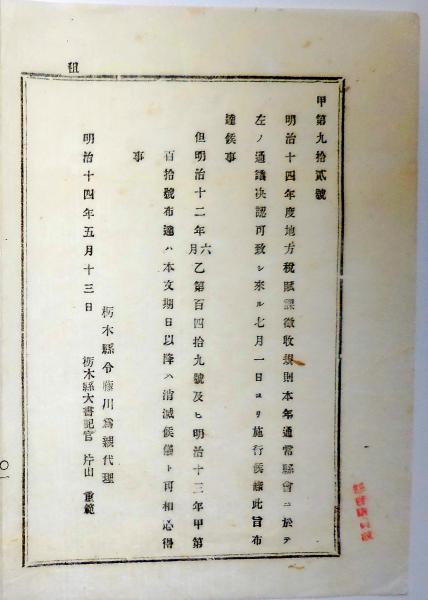 租
甲第九拾貳號
明治十四年度地方稅賦課徵收規則本年通常縣會ニ於テ
左ノ通議決認可致シ來ル七月一日ヨリ施行候條此旨布
達候事
但明治十二年六月乙第百四拾九號及ヒ明治十三年甲第
百拾號布達ハ本文期日以降ハ消滅候儀ト可相心得
事
明治十四年五月十三日
栃木縣令藤川爲親代理
栃木縣大書記官 片山 重範